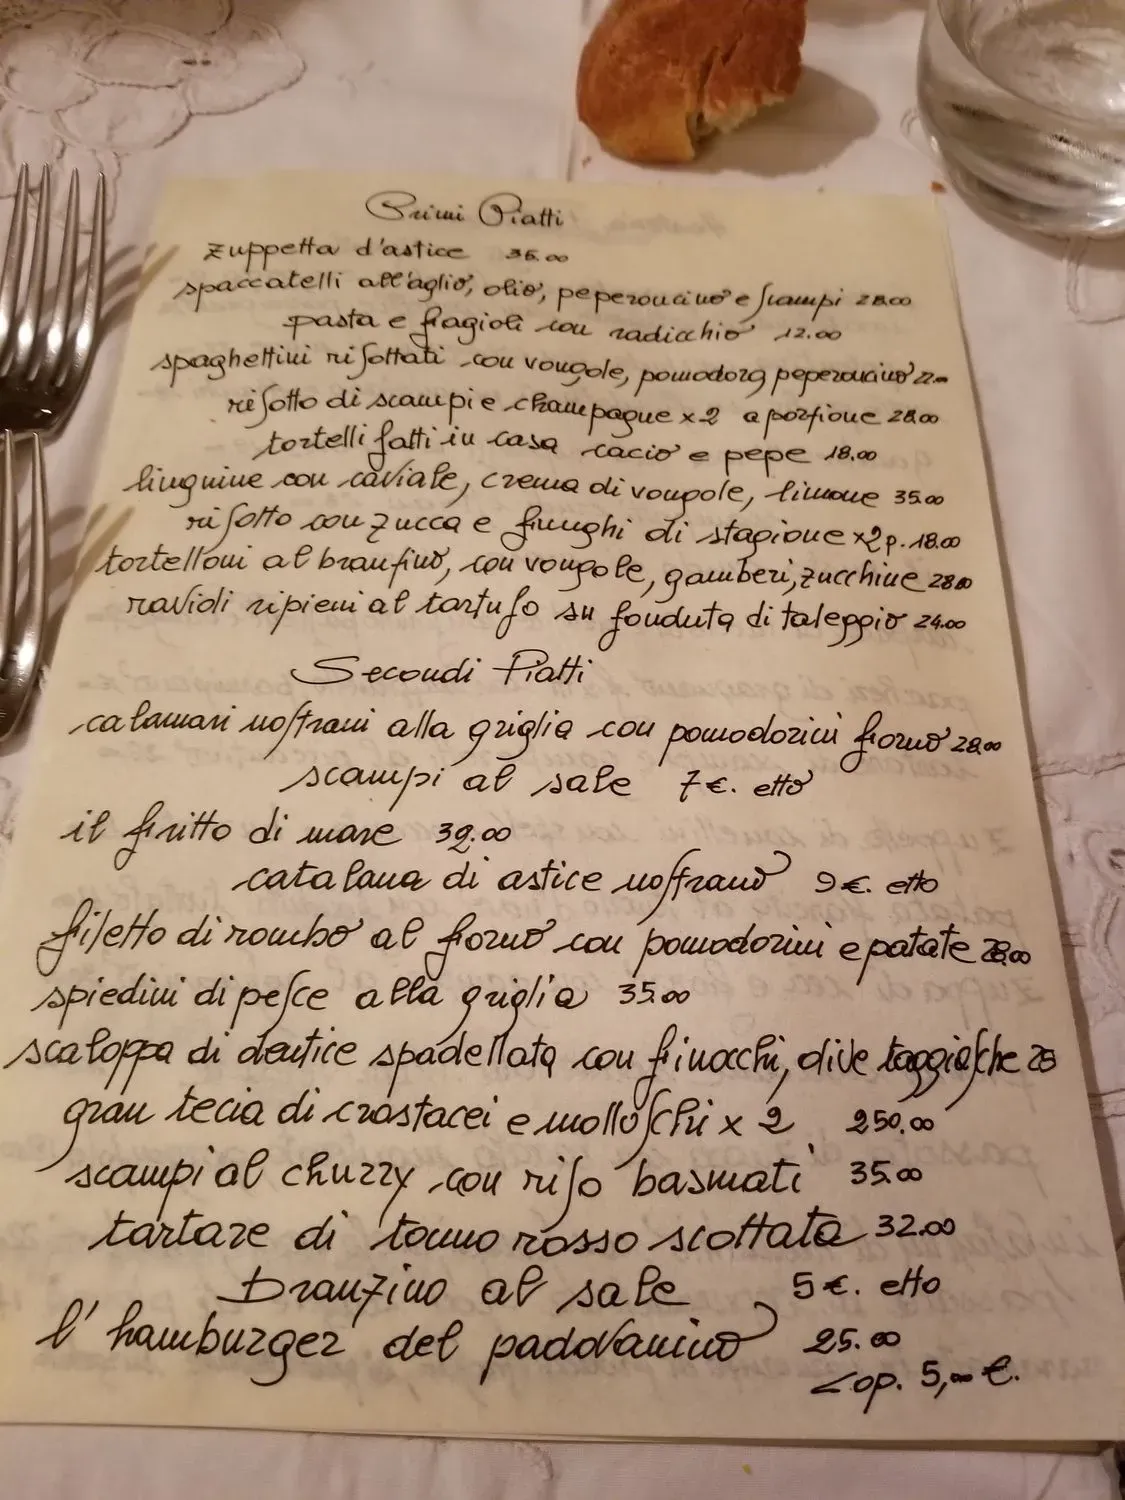 Primi Piatti
zuppetta d'astice 36.00
spaccatelli all'aglio, olio, peperoncino e scampi 28.00
pasta e fagioli con radicchio 12.00
spaghettini risottati con vongole, pomodoro peperoncino 22.00
risotto di scampi e champagne x2 a porzione 28.00
tortelli fatti in casa cacio e pepe 18.00
linguine con caviale, crema di vongole, limone 35.00
risotto con zucca e funghi di stagione x2 p. 18.00
tortelloni al branzino, con vongole, gamberi, zucchine 28.00
ravioli ripieni al tartufo su fonduta di taleggio 24.00
Secondi Piatti
calamari nostrani alla griglia con pomodorini forno 28.00
scampi al sale 7€. etto
il fritto di mare 32.00
catalana di astice nostrano 9€. etto
filetto di rombo al forno con pomodorini e patate 28.00
spiedini di pesce alla griglia 35.00
scaloppa di dentice spadellata con finocchi, olive taggiasche 28
gran tecia di crostacei e molluschi x 2 250.00
scampi al churry con riso basmati 35.00
tartare di tonno rosso scottata 32.00
Branzino al sale 5€. etto
l'hamburger del padovanino 25.00
Cop. 5,00 €.